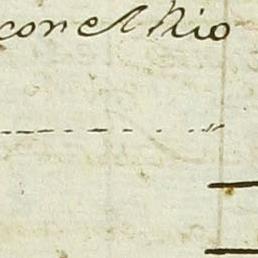 con el Rio